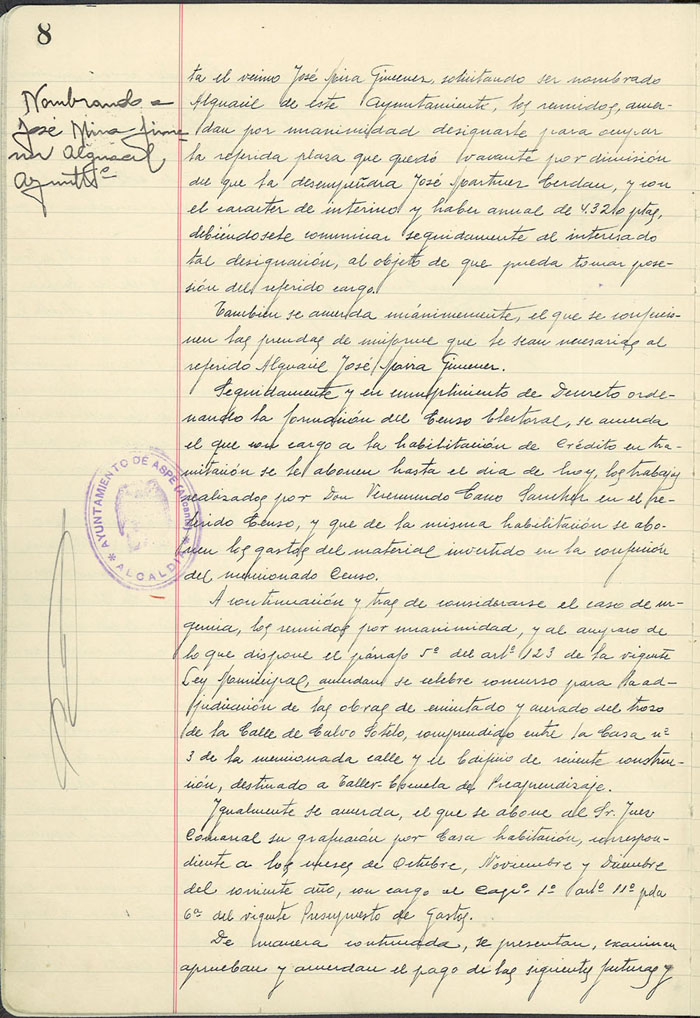 8
Nombrando a
José Mira Jime
nez Alguacil
Ayuntto
ta el vecino José Mira Gimenez, solicitando ser nombrado
Alguacil de este Ayuntamiento, los reunidos, acuer-
dan por unanimidad designarle para ocupar
la referida plaza que quedó vacante por dimisión
de que la desempeñara José Martinez Cerdan, y con
el caracter de interino y haber anual de 4.320 ptas,
debiéndosele comunicar seguidamente al interesado
tal designación, al objeto de que pueda tomar pose-
sión del referido cargo.
Tambien se acuerda unánimemente, el que se confeccio-
nen las prendas de uniforme que le sean necesarias al
referido Alguacil José Mira Gimenez.
Seguidamente y en cumplimiento de Decreto orde-
nando la formación del Censo Electoral, se acuerda
el que con cargo a la habilitación de Crédito en tra-
mitación se le abonen hasta el dia de hoy, los trabajos
realizados por Don Veremundo Cano Sanchez en el re-
ferido Censo, y que de la misma habilitación se abo-
nen los gastos del material invertido en la confección
del mencionado Censo.
A continuación y tras de considerarse el caso de ur-
gencia, los reunidos por unanimidad, y al amparo de
lo que dispone el párrafo 5º del artº 123 de la vigente
Ley Municipal, acuerdan se celebre concurso para la ad-
judicación de las obras de encintado y acerado del trozo
de la Calle de Calvo Sotelo, comprendido entre la Casa nº
3 de la mencionada calle y el Edificio de reciente construc-
ción, destinado a Taller-Escuela de Preaprendizaje.
Igualmente se acuerda, el que se abone al Sr. Juez
Comarcal su gratificación por Casa habitación, correspon-
diente a los meses de Octubre, Noviembre y Diciembre
del corriente año, con cargo al Capº 1º artº 11º pda
6ª del vigente Presupuesto de Gastos.
De manera continuada, se presentan, examinan
aprueban y acuerdan el pago de las siguientes facturas y
AYUNTAMIENTO DE ASPE (Alicante)
ALCALDIA